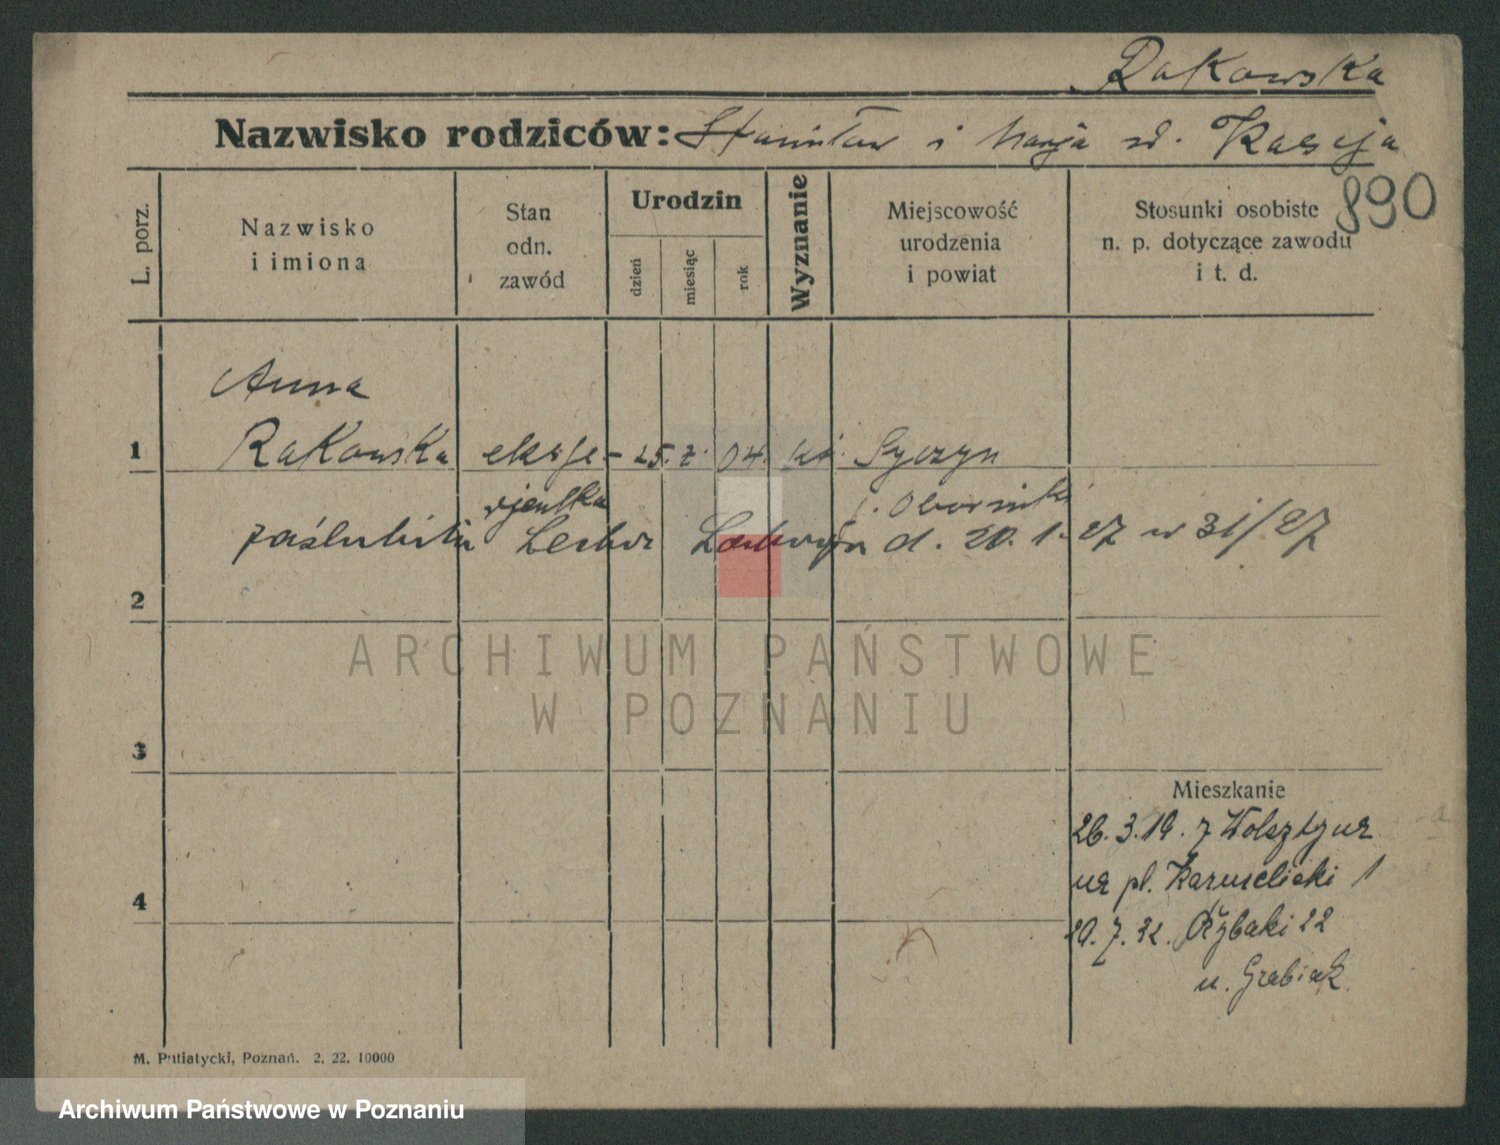 Rakowska
Nazwisko rodziców: Stanisław i Marja zd. Kasuja
890
L. porz.
Nazwisko
i imiona
Stan
odn.
zawód
Urodzin
dzień
miesiąc
rok
Wyznanie
Miejscowość
urodzenia
i powiat
Stosunki osobiste
n. p. dotyczące zawodu
i t. d.
Anna
1 Rakowska ekspe- 25. 7. 04. kat. Syczyn
djentka p. Oborniki
zaślubiła d. 20. 1. 27 w 31/27
2
3
Mieszkanie
26. 3. 19. z Wolsztyna
4 na pl. Karmelicki 1
20. 7. 32. Rybaki 22
u. Grabiak
M. Putiatycki, Poznań. 2. 22. 10000
ARCHIWUM PAŃSTWOWE
W POZNANIU
Archiwum Państwowe w Poznaniu